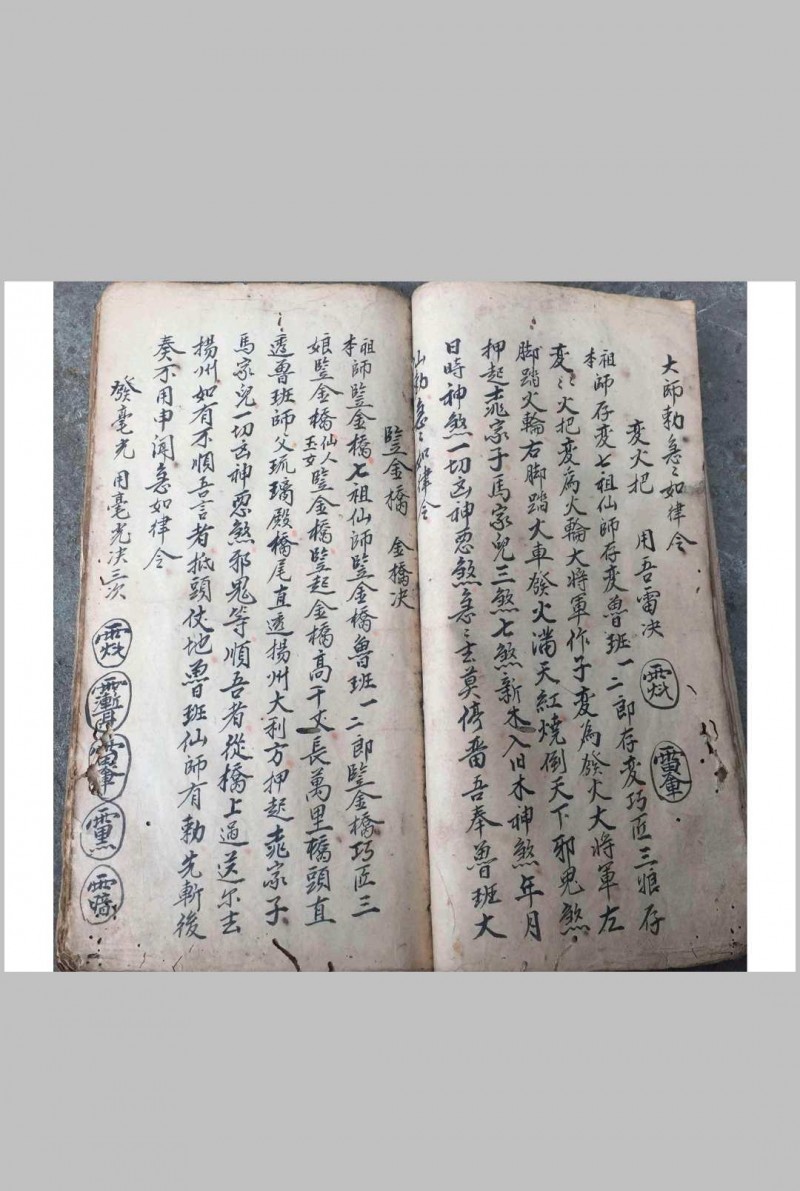 大師勅急〻如律令
変火把　用吾雷决
祖本師存変七祖仙師存変魯班一二郎存変巧匠三娘存
変〻火把変為火輪大將軍作子変為發火大將軍左
脚踏火輪右脚踏火車發火滿天紅燒倒天下邪鬼煞
押起家子馬家兒三煞七煞新木入旧木神煞年月
日時神煞一切凶神恶煞急〻去莫停畱吾奉魯班大
勅急〻如律令
豎金橋　金橋决
祖本師豎金橋七祖仙師豎金橋魯班一二郎豎金橋巧匠三
娘豎金橋仙人玉女豎金橋豎起金橋高千丈長萬里橋頭直
透魯班師父琉璃殿橋尾直透揚州大利方押起家子
馬家兒一切凶神恶煞邪鬼等順吾者從橋上過送尔去
揚州如有不順吾言者抵頭伏地魯班仙師有勅先斬後
奏不用申聞急如律令
發毫光　用毫光决三次